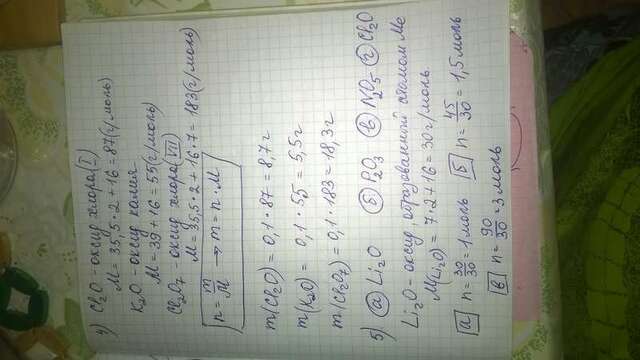 4) Cl₂O - оксид хлора (I)
M = 35,5·2 + 16 = 87 (г/моль)
K₂O - оксид калия
M = 39 + 16 = 55 (г/моль)
Cl₂O₇ - оксид хлора (VII)
M = 35,5·2 + 16·7 = 183 (г/моль)
n = m/M → m = n·M
m(Cl₂O) = 0,1·87 = 8,7 г
m(K₂O) = 0,1·55 = 5,5 г
m(Cl₂O₇) = 0,1·183 = 18,3 г
5) а) Li₂O б) P₂O₃ в) N₂O₅ г) Cl₂O
Li₂O - оксид, образованный атомом Me
M(Li₂O) = 7·2 + 16 = 30 г/моль
а n = 30/30 = 1 моль б n = 45/30 = 1,5 моль
в n = 90/30 = 3 моль